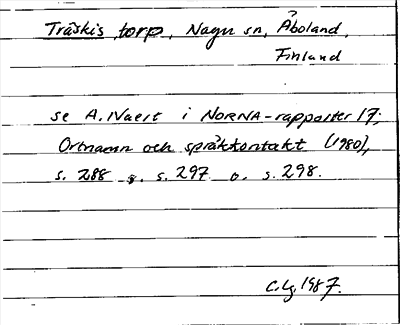 Träskis, torp, Nagu sn, Åboland,
Finland
se A. Naert i NORNA-rapporter 17;
Ortnamn och språkkontakt (1980),
s. 288 s. 297 o. s. 298.
C.Lg. 1987.